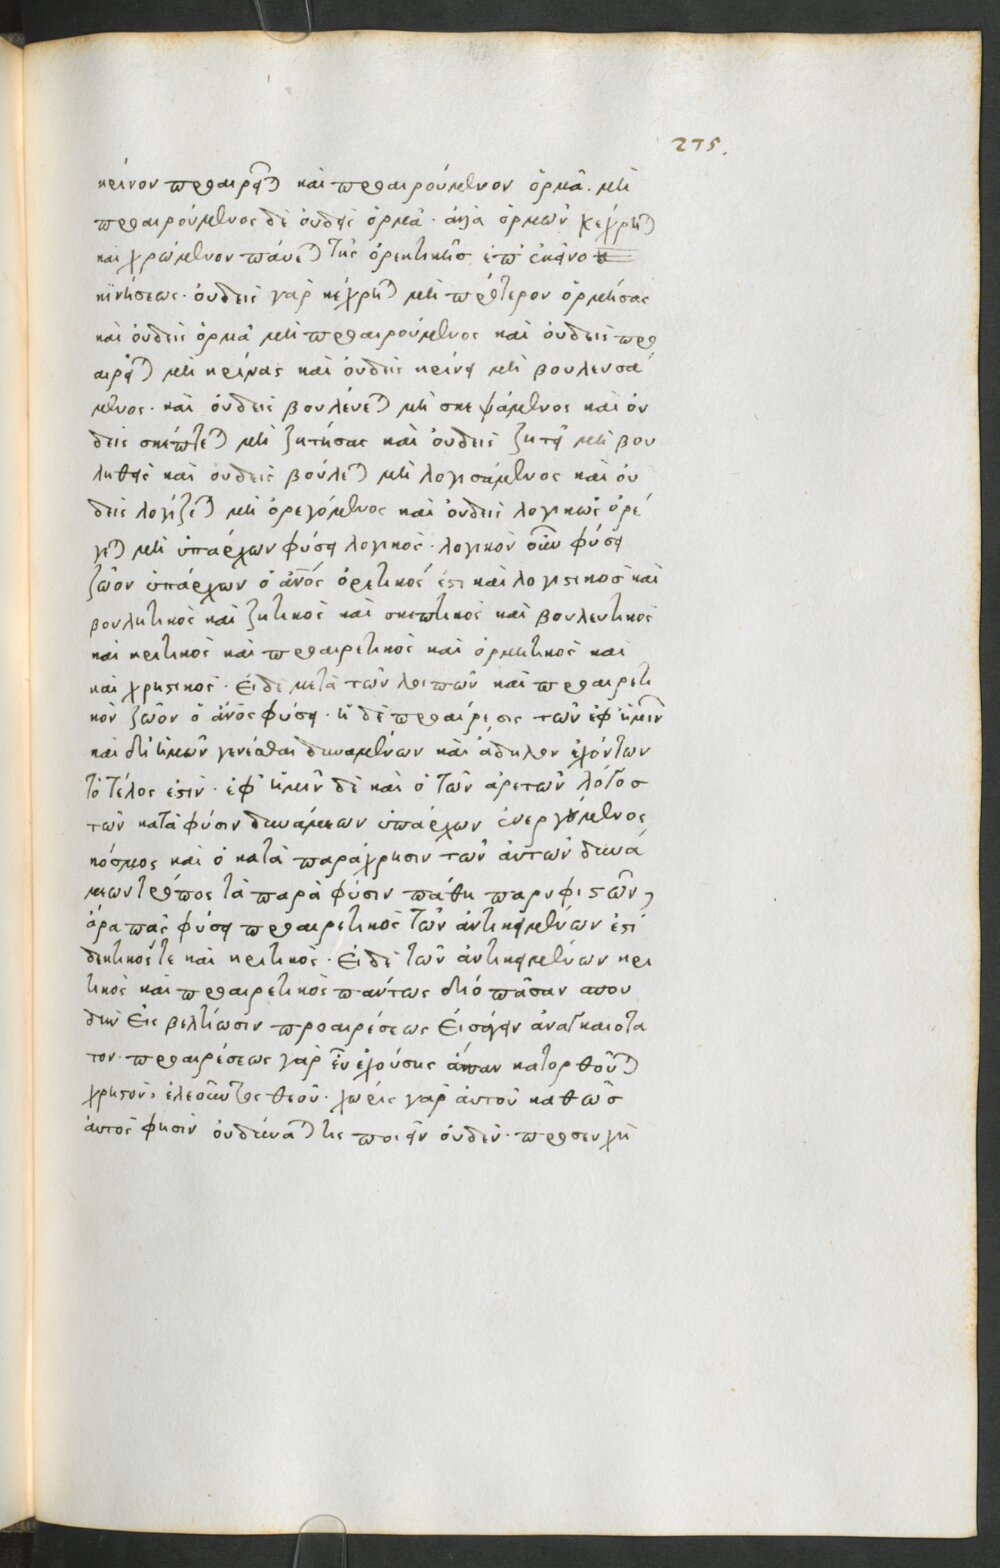 275.
κρίνον προαιρεῖται καὶ προαιρούμενον ὁρμᾶ. μὴ
προαιρούμενος δὲ οὐδεὶς ὁρμᾶ. ἀλλὰ ὁρμῶν κέχρηται
καὶ χρώμενον παύεται τῆς ὀρεκτικῆς ἐπ' ἐκεῖνο
κινήσεως. οὐδεὶς γὰρ κέχρηται μὴ πρότερον ὁρμήσας
καὶ οὐδεὶς ὁρμᾶ μὴ προαιρούμενος καὶ οὐδεὶς προ
αιρεῖται μὴ κρίνας καὶ οὐδεὶς κρίνει μὴ βουλευσά
μενος. καὶ οὐδεὶς βουλεύεται μὴ σκεψάμενος καὶ οὐ
δεὶς σκέπτεται μὴ ζητήσας καὶ οὐδεὶς ζητεῖ μὴ βου
ληθεὶς καὶ οὐδεὶς βούλεται μὴ λογισάμενος καὶ οὐ
δεὶς λογίζεται μὴ ὀρεγόμενος καὶ οὐδεὶς λογικῶς ὀρέ
γεται μὴ ὑπάρχων φύσει λογικός. λογικὸν οὖν φύσει
ζῶον ὑπάρχων ὁ ἄνος ὀρετικός ἐστι καὶ λογιστικὸς καὶ
βουλητικὸς καὶ ζητικὸς καὶ σκεπτικὸς καὶ βουλευτικὸς
καὶ κριτικὸς καὶ προαιρετικὸς καὶ ὁρμητικὸς καὶ
καὶ χρηστικός. εἰ δὲ μετὰ τῶν λοιπῶν καὶ προαιρετι
κὸν ζῶον ὁ ἄνος φύσει. ἡ δὲ προαίρεσις τῶν ἐφ' ἡμῖν
καὶ δι' ἡμῶν γενέσθαι δυναμένων καὶ ἄδηλον ἐχόντων
τὸ τέλος ἐστίν. ἐφ' ἡμῖν δὲ καὶ ὁ τῶν ἀρετῶν λόγος
τῶν κατὰ φύσιν δυνάμεων ὑπάρχων ἐνεργούμενος
κόσμος καὶ ὁ κατὰ παράχρησιν τῶν αὐτῶν δυνά
μεων τρόπος τὰ παρὰ φύσιν πάθη παρυφιστῶν,
ἄρα πᾶς φύσει προαιρετικὸς τῶν ἀντικειμένων ἐστὶ
δεκτικός τε καὶ κριτικός. εἰ δὲ τῶν ἀντικειμένων κρι
τικὸς καὶ προαιρετικὸς πάντως διὸ πᾶσαν σπου
δὴν εἰς βελτίωσιν προαιρέσεως εἰσάγειν ἀναγκαιότα
τον. προαιρέσεως γὰρ εὖ ἐχούσης ἅπαν κατορθοῦται
χρηστόν, ἐλεοῦντος θεοῦ. χωρὶς γὰρ αὐτοῦ καθὼς
αὐτός φησιν οὐ δύναταί τις ποιεῖν οὐδέν. προσευχὴ